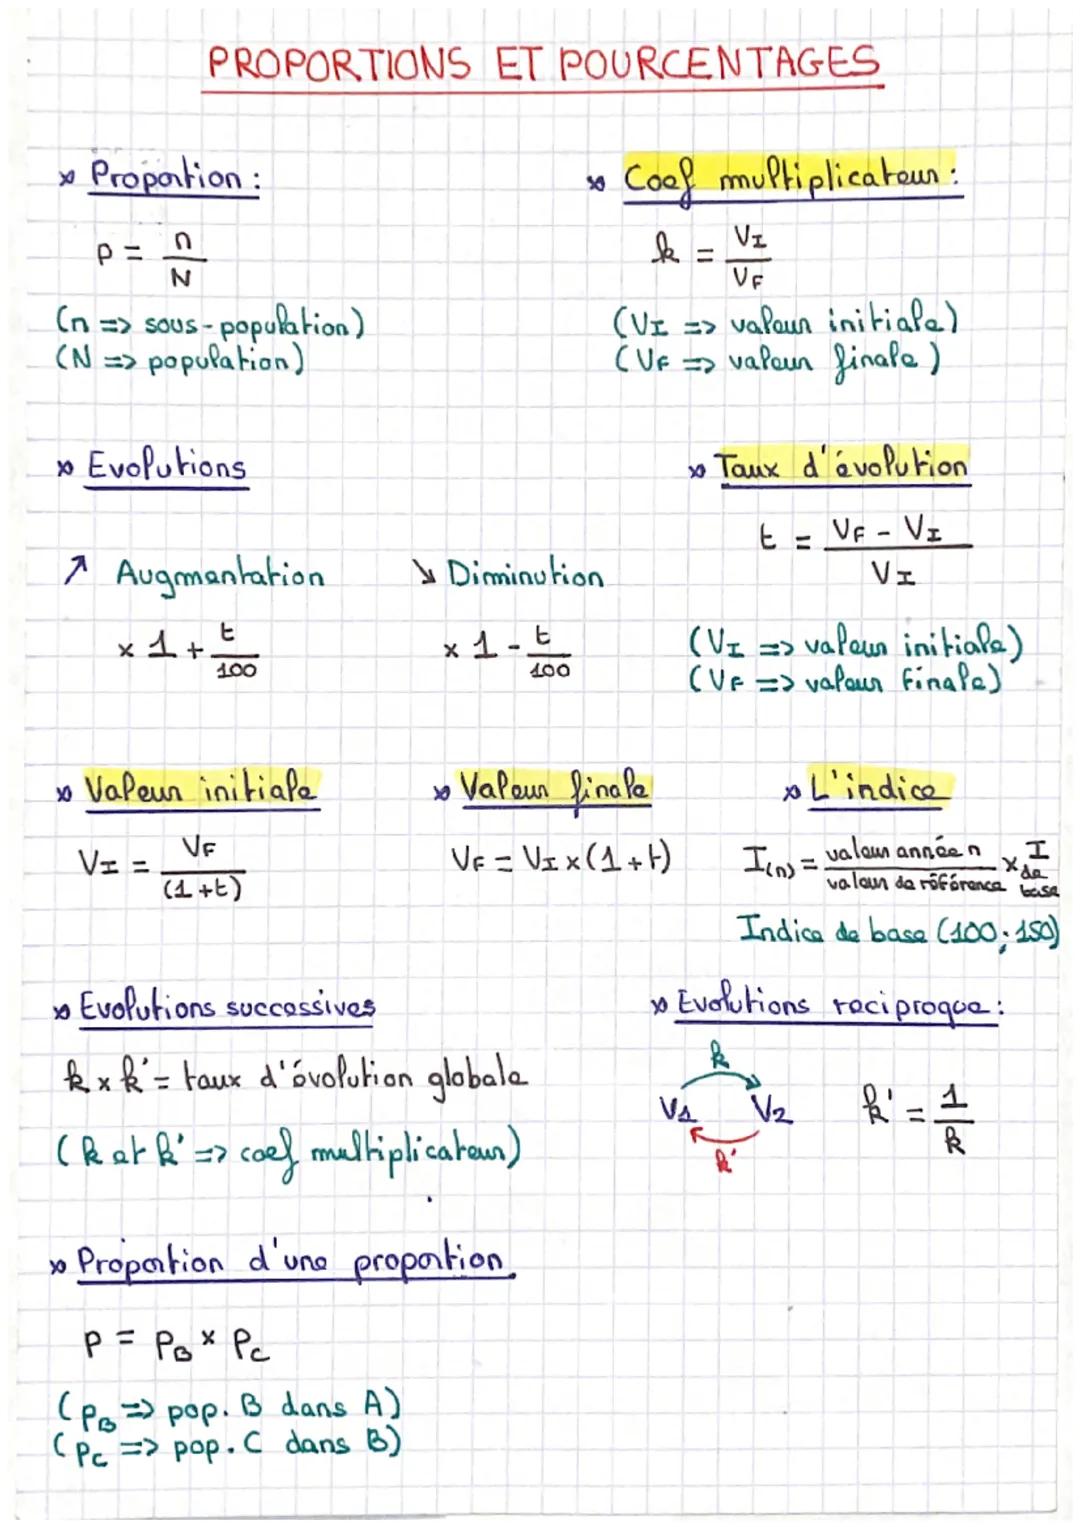 PROPORTIONS ET POURCENTAGES
Proportion :
p = n/N
(n => sous-population)
(N => population)
Coef multiplicateur :
k = VI/VF
(VI => valeur initiale)
(VF => valeur finale)
Evolutions
↗ Augmentation
× 1 + t/100
↘ Diminution
× 1 - t/100
Taux d'évolution
t = VF - VI/VI
(VI => valeur initiale)
(VF => valeur finale)
Valeur initiale
VI = VF/(1+t)
Valeur finale
VF = VI × (1+t)
L'indice
I(n) = valeur année n/valeur de référence × I de base
Indice de base (100; 150)
Evolutions successives
k × k' = taux d'évolution globale
(k et k' => coef multiplicateur)
Evolutions reciproque :
k
V1 V2
k'
k' = 1/k
Proportion d'une proportion.
p = pB × pC
(pB => pop. B dans A)
(pC => pop. C dans B)